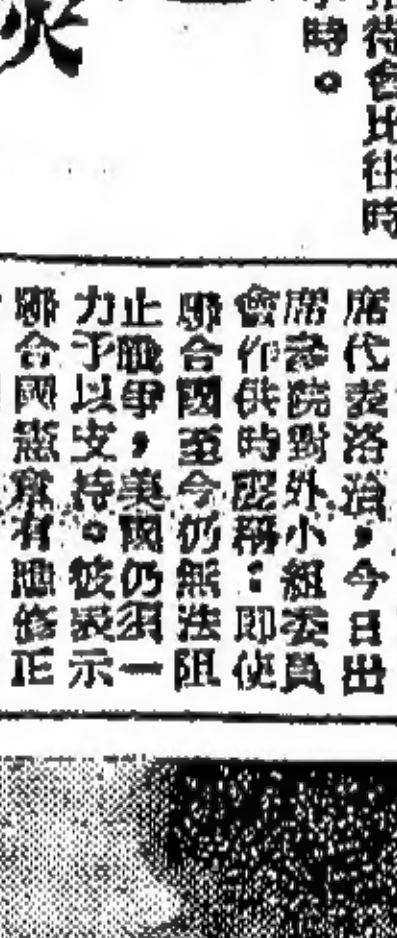 招待會比往時
時。
火
席代表洛治,今日出
席參院對外小組委員
會作供時證稱:即使
聯合國至今仍無法阻
止戰爭,美國仍須一
力予以支持。彼表示
聯合國憲章有應修正